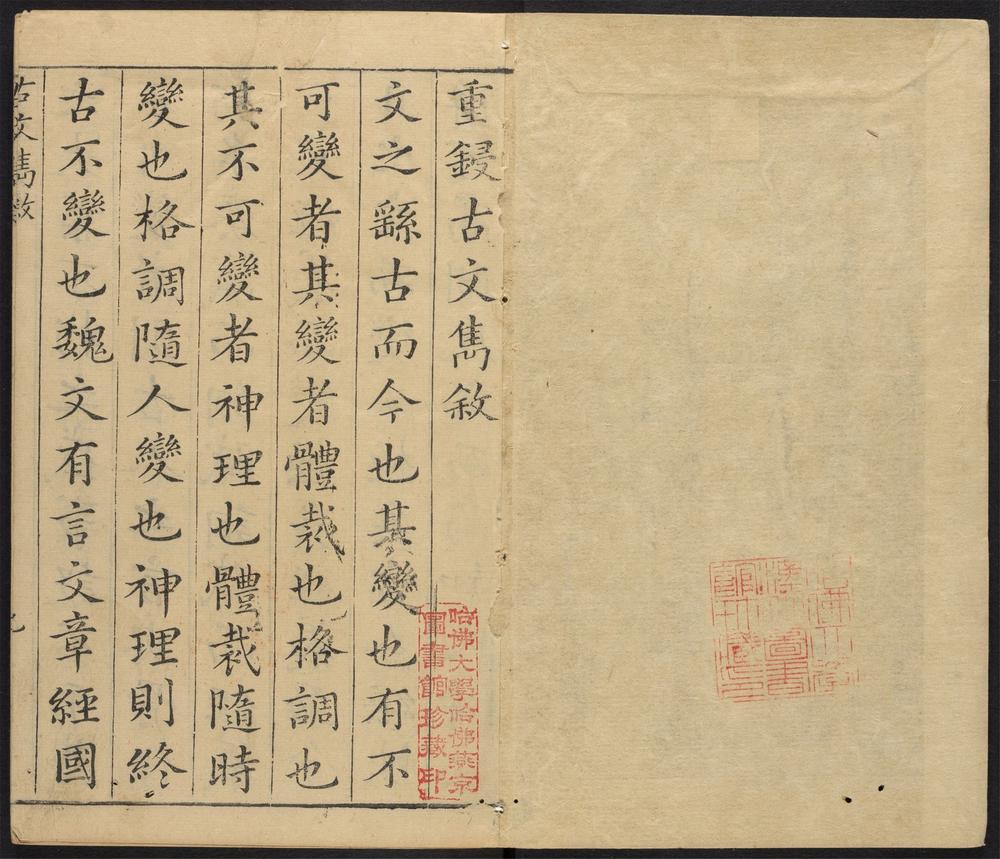 重鋟古文雋敘
文之繇古而今也其變也有不
可變者其變者體裁也格調也
其不可變者神理也體裁隨時
變也格調隨人變也神理則終
古不變也魏文有言文章經國
古文雋敘
哈佛大學哈佛燕京
圖書館珍藏印